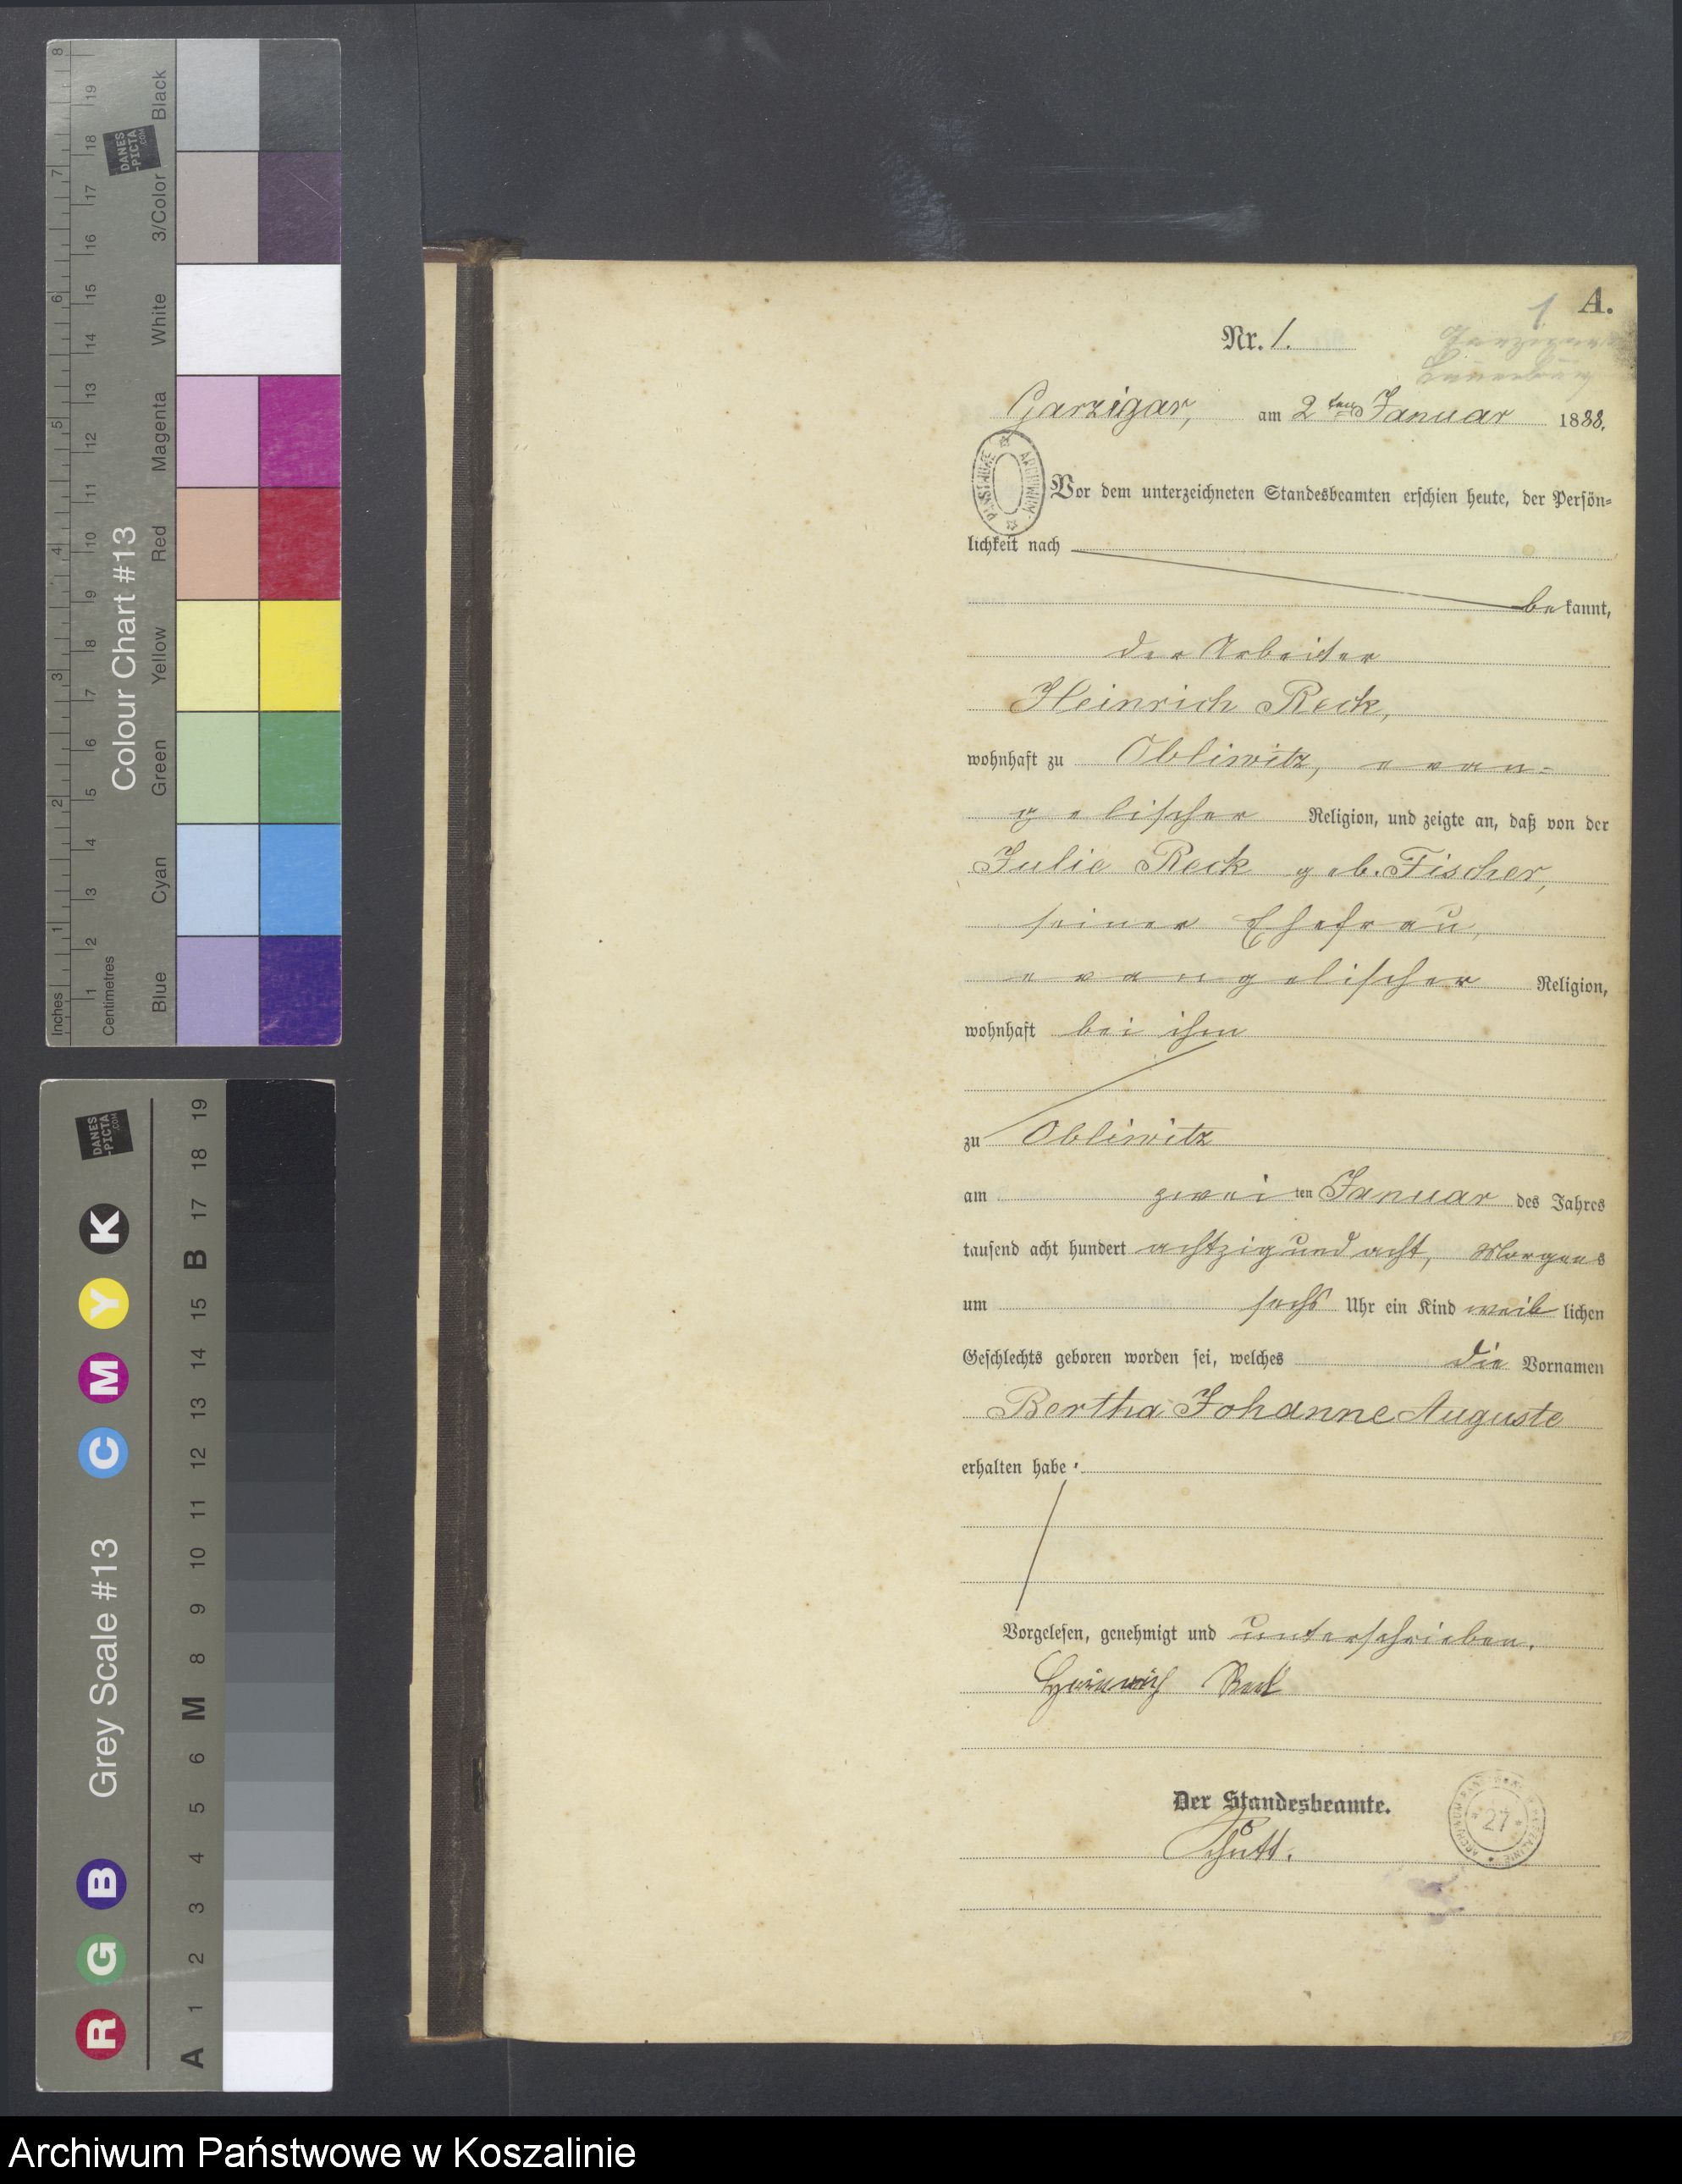 8
7
6
5
4
3
2
1
Inches
19
18
17
16
15
14
13
12
11
10
9
8
7
6
5
4
3
2
1
Centimetres
DANES
-PICTA
.COM
Colour Chart #13
Black
3/Color
White
Magenta
Red
Yellow
Green
Cyan
Blue
DANES
-PICTA
.COM
R G B Grey Scale #13 C M Y K
A 1 2 3 4 5 6 M 8 9 10 11 12 13 14 15 B 17 18 19
1 A.
Nr. 1.
Garzigar, am 2ten Januar 1888.
ARCHIWUM PAŃSTWOWE
Vor dem unterzeichneten Standesbeamten erschien heute, der Persön=
lichkeit nach
be kannt,
der Arbeiter
Heinrich Reck,
wohnhaft zu Obliwitz, evan=
gelischer Religion, und zeigte an, daß von der
Julie Reck geb. Fischer,
seiner Ehefrau,
evangelischer Religion,
wohnhaft bei ihm
zu Obliwitz
am zwei ten Januar des Jahres
tausend acht hundert achtzig und acht, Morgens
um sechs Uhr ein Kind weib lichen
Geschlechts geboren worden sei, welches die Vornamen
Bertha Johanne Auguste
erhalten habe.
Vorgelesen, genehmigt und unterschrieben.
Heinrich Reck
Der Standesbeamte.
27
Archiwum Państwowe w Koszalinie